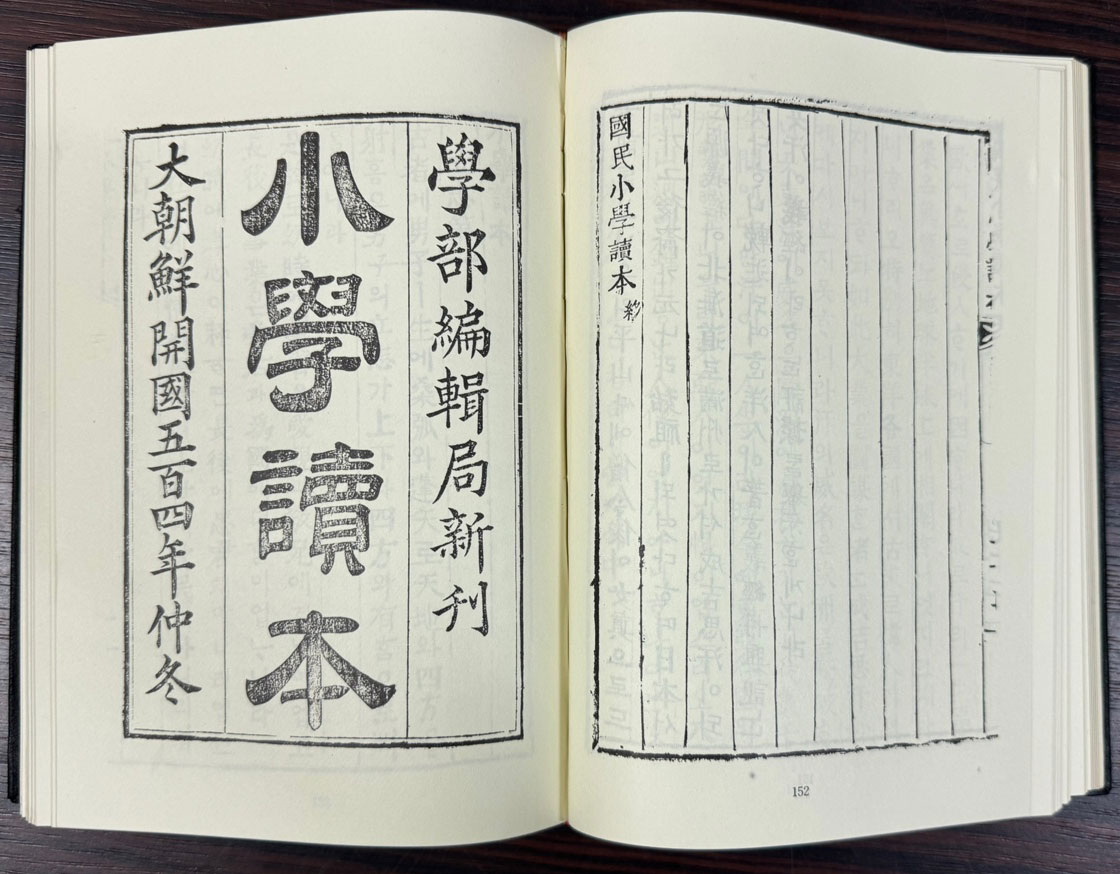 國民小學讀本 終
152
學部編輯局新刊
小學讀本
大朝鮮開國五百四年仲冬